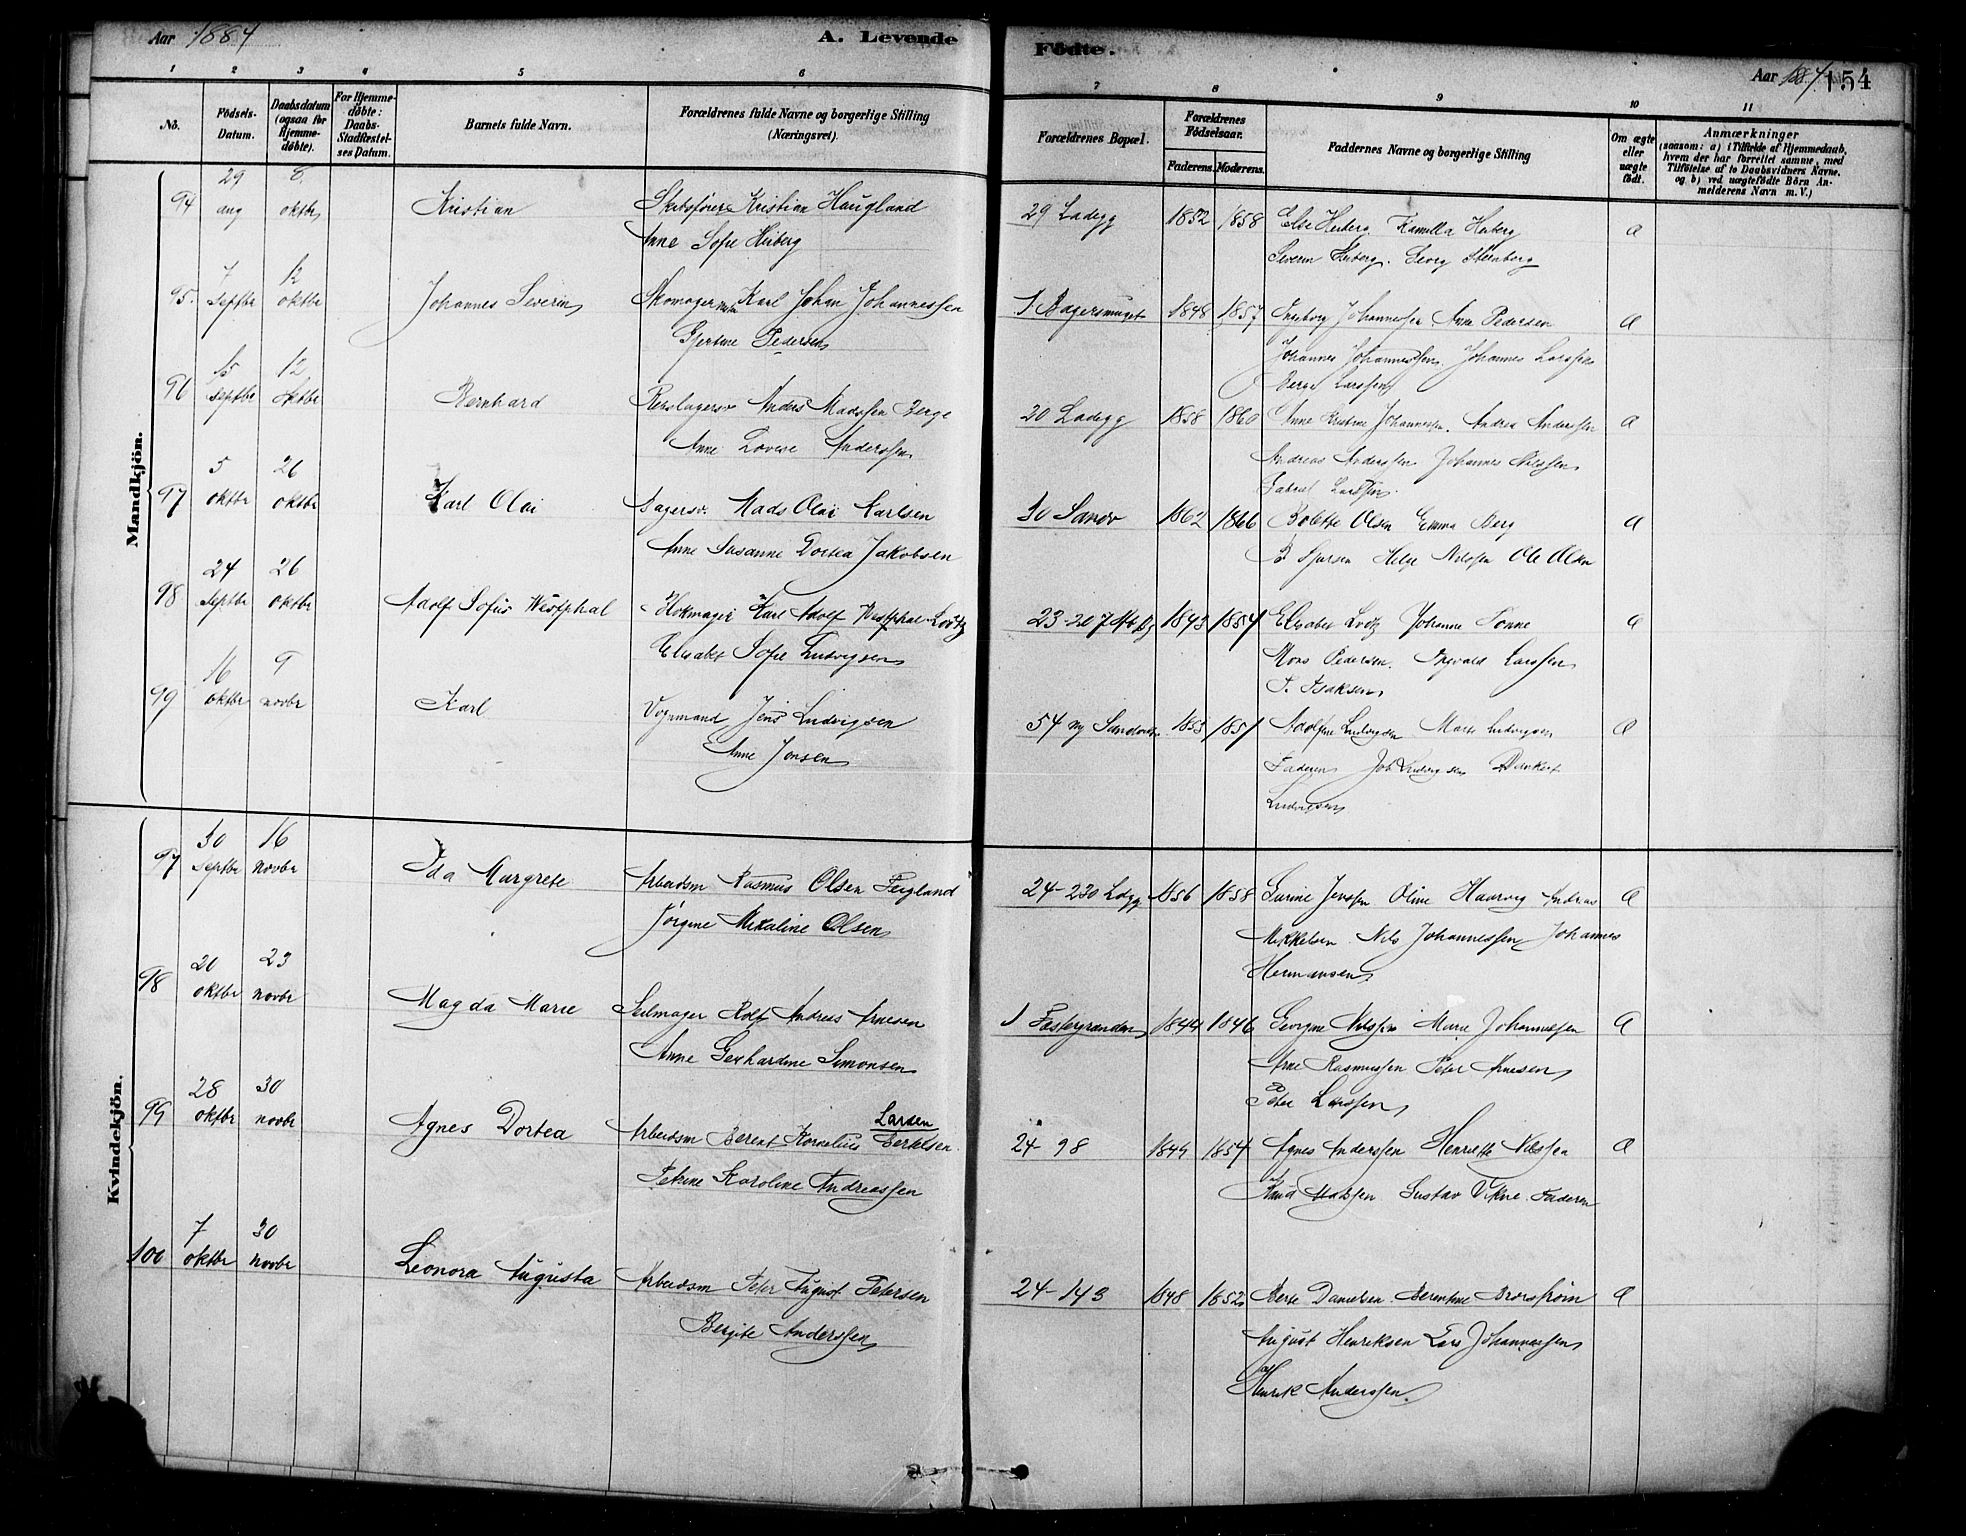 Aar 1884 A. Levende
Födte. Aar 1884. 154
1 2 3 4 5 6
7 8 9 10 11
No. Födsels-Datum. Daabsdatum (ogsaa for Hjemmedøbte). For Hjemmedøbte: Daabs-Stadfæstelses Datum. Barnets fulde Navn. Forældrenes fulde Navne og borgerlige Stilling (Næringsvei).
Forældrenes Bopæl. Forældrenes Födselsaar. Faderens. Moderens. Faddernes Navne og borgerlige Stilling Om ægte eller uægte födt. Anmærkninger (saasom: a) i Tilfælde af Hjemmedaab, hvem der har forrettet samme, med Tilföielse af to Daabsvidners Navne, og b) ved uægtefödte Börn Anmelderens Navn m. V.)
Mandkjön.
94 29 aug 8 oktbr Kristian Skibsfører Kristian Haugland
Anne Sofie Heiberg
29 Ladegg 1852 1858 Else Heiberg. Kamilla Heiberg a
Severin Heiberg. Georg Steenberg
95. 7 septbr 12 oktbr Johannes Severin Skomager Karl Johan Johannessen
Gjertine Pedersen
1848 1857 Ingeborg Johannessen Anne Pedersen a
Johannes Johannessen Johannes Larssen
Berge Larssen
96 15 septbr 12 oktbr Bernhard Rebslagersv Anders Madssen Berge
Anne Lovise Anderssen
20 Ladegg 1858 1860 Anne Kristine Johannessen. Andrea Anderssen a
Andreas Anderssen Johannes Nilssen
Gabriel Larssen.
97 5 oktbr 26 oktbr Karl Olai Bagersv. Mads Olai Karlsen
Anne Susanne Dortea Jakobsen
30 Sandv 1862 1866 Bolette Olsen Emma Berg a
Helge Nilssen Ole Olsen
98 24 septbr 26 oktbr Adolf Sofus Westphal Karl Adolf Westphal Lootz
Elisabet Sofie Ludvigsen
23-207 1843 1854 Elisabet Lootz Johanne Tonne a
Mons Pedersen. Ingvald Larssen
Isaksen
99 16 oktbr 9 novbr Karl Vognmand Jens Ludvigsen
Anne Jonsen
54 ny Sandv 1853 1851 Adolfine Ludvigsen Marte Ludvigsen a
Faderen Job Ludvigsen Dankert
Ludvigsen
Kvindekjön.
97 30 septbr 16 novbr Ida Margrete Arbeidsm Rasmus Olsen Feigland
Jørgine Mikaline Olsen
24-230 Ladegg 1856 1858 Gurine Jenssen Oline Haarvig Andreas a
Mikkelsen. Nils Johannessen Johannes
Hermansen
98 20 oktbr 23 novbr Magda Marie Seilmager Rolf Andreas Arnesen
Anne Gerhardine Simonsen
1 Fostergranden 1844 1846 Georgine Nilssen Marie Johannessen a
Arne Rasmussen Peter Arnesen
Peter Larssen
99 28 oktbr 30 novbr Agnes Dortea Arbeidsm Berent Kornelius Bertelsen Larsen
Petrine Karoline Andreassen
24-98 1849 1854 Agnes Anderssen Henriette Nilssen a
Knud Madssen Gustav Vikne. Faderen
100 7 oktbr 30 novbr Leonora Augusta Arbeidsm Peter August Petersen
Bergite Anderssen
24-143 1848 1852 Berte Danielsen. Berentine Brorstrøm a
August Henriksen Lars Johannessen
Henrik Anderssen.